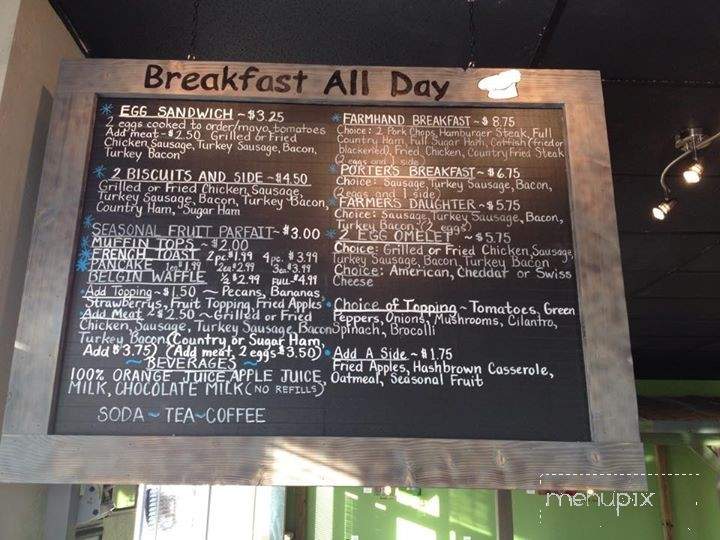 Breakfast All Day
* EGG SANDWICH ~ $3.25
2 eggs cooked to order/mayo, tomatoes
Add meat ~ $2.50 Grilled or Fried
Chicken, Sausage, Turkey Sausage, Bacon,
Turkey Bacon
* 2 BISCUITS AND SIDE ~ $4.50
Grilled or Fried Chicken, Sausage,
Turkey Sausage, Bacon, Turkey Bacon,
Country Ham, Sugar Ham
* SEASONAL FRUIT PARFAIT ~ $3.00
* MUFFIN TOPS ~ $2.00
* FRENCH TOAST 2pc. $1.99 4pc. $3.99
* PANCAKE 1ea $1.99 2ea $2.99 3ea $3.99
BELGIN WAFFLE ½ $2.99 FULL $4.99
• Add Topping ~ $1.50 ~ Pecans, Bananas
Strawberrys, Fruit Topping, Fried Apples
• Add Meat ~ $2.50 ~ Grilled or Fried
Chicken, Sausage, Turkey Sausage, Bacon
Turkey Bacon (Country or Sugar Ham,
Add $3.75) (Add meat, 2 eggs $3.50)
~ BEVERAGES ~
100% ORANGE JUICE, APPLE JUICE,
MILK, CHOCOLATE MILK (NO REFILLS)
SODA ~ TEA ~ COFFEE
* FARMHAND BREAKFAST ~ $8.75
Choice: 2 Pork Chops, Hamburger Steak, Full
Country Ham, Full Sugar Ham, Catfish (fried or
blackened), Fried Chicken, Country Fried Steak
(2 eggs and 1 side)
* PORTER'S BREAKFAST ~ $6.75
Choice: Sausage, Turkey Sausage, Bacon,
(2 eggs and 1 side)
* FARMERS DAUGHTER ~ $5.75
Choice: Sausage, Turkey Sausage, Bacon,
Turkey Bacon (2 eggs)
* 2 EGG OMELET ~ $5.75
Choice: Grilled or Fried Chicken, Sausage
Turkey Sausage, Bacon, Turkey Bacon
Choice: American, Cheddar or Swiss
Cheese
• Choice of Topping ~ Tomatoes, Green
Peppers, Onions, Mushrooms, Cilantro,
Spinach, Brocolli
• Add A Side ~ $1.75
Fried Apples, Hashbrown Casserole,
Oatmeal, Seasonal Fruit
menupix